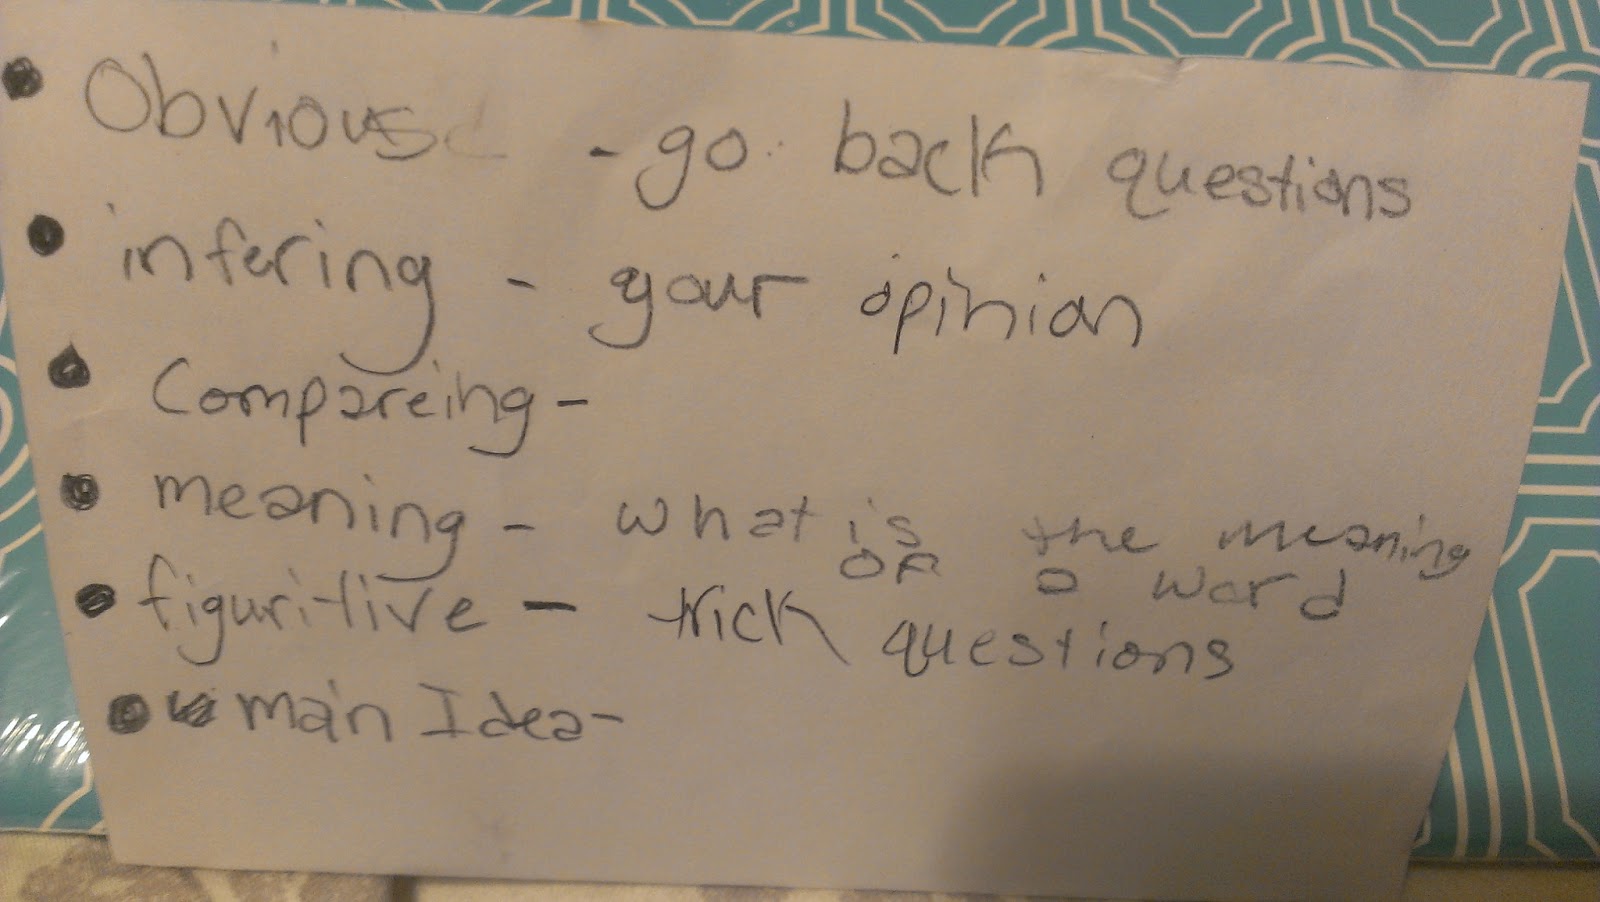 • Obvious - go back questions
• infering - your opinion
• Compareing -
• meaning - what is the meaning
OF a word
• figuritive - trick questions
• main Idea -